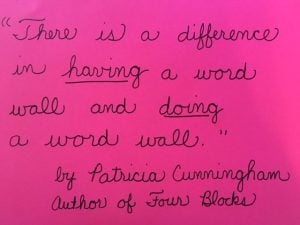 "There is a difference
in having a word
wall and doing
a word wall."
by Patricia Cunningham
Author of Four Blocks